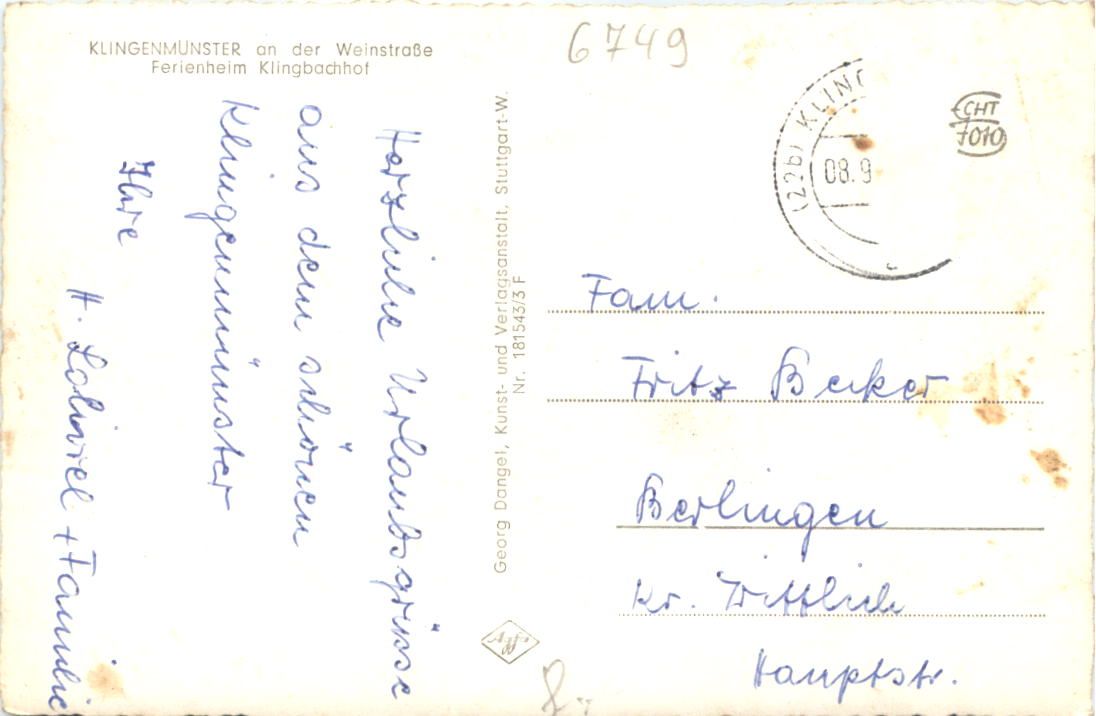 KLINGENMÜNSTER an der Weinstraße
Ferienheim Klingbachhof
6749
Herzliche Urlaubsgrüsse
aus dem schönen
Klingenmünster
Ihre
H. + Familie
Georg Dangel, Kunst- und Verlagsanstalt, Stuttgart-W.
Nr. 181543/3 F
(22b) KLING
08.9
ECHT
7010
Fam.
Fritz Becker
Berlingen
Kr. Wittlich
Hauptstr.